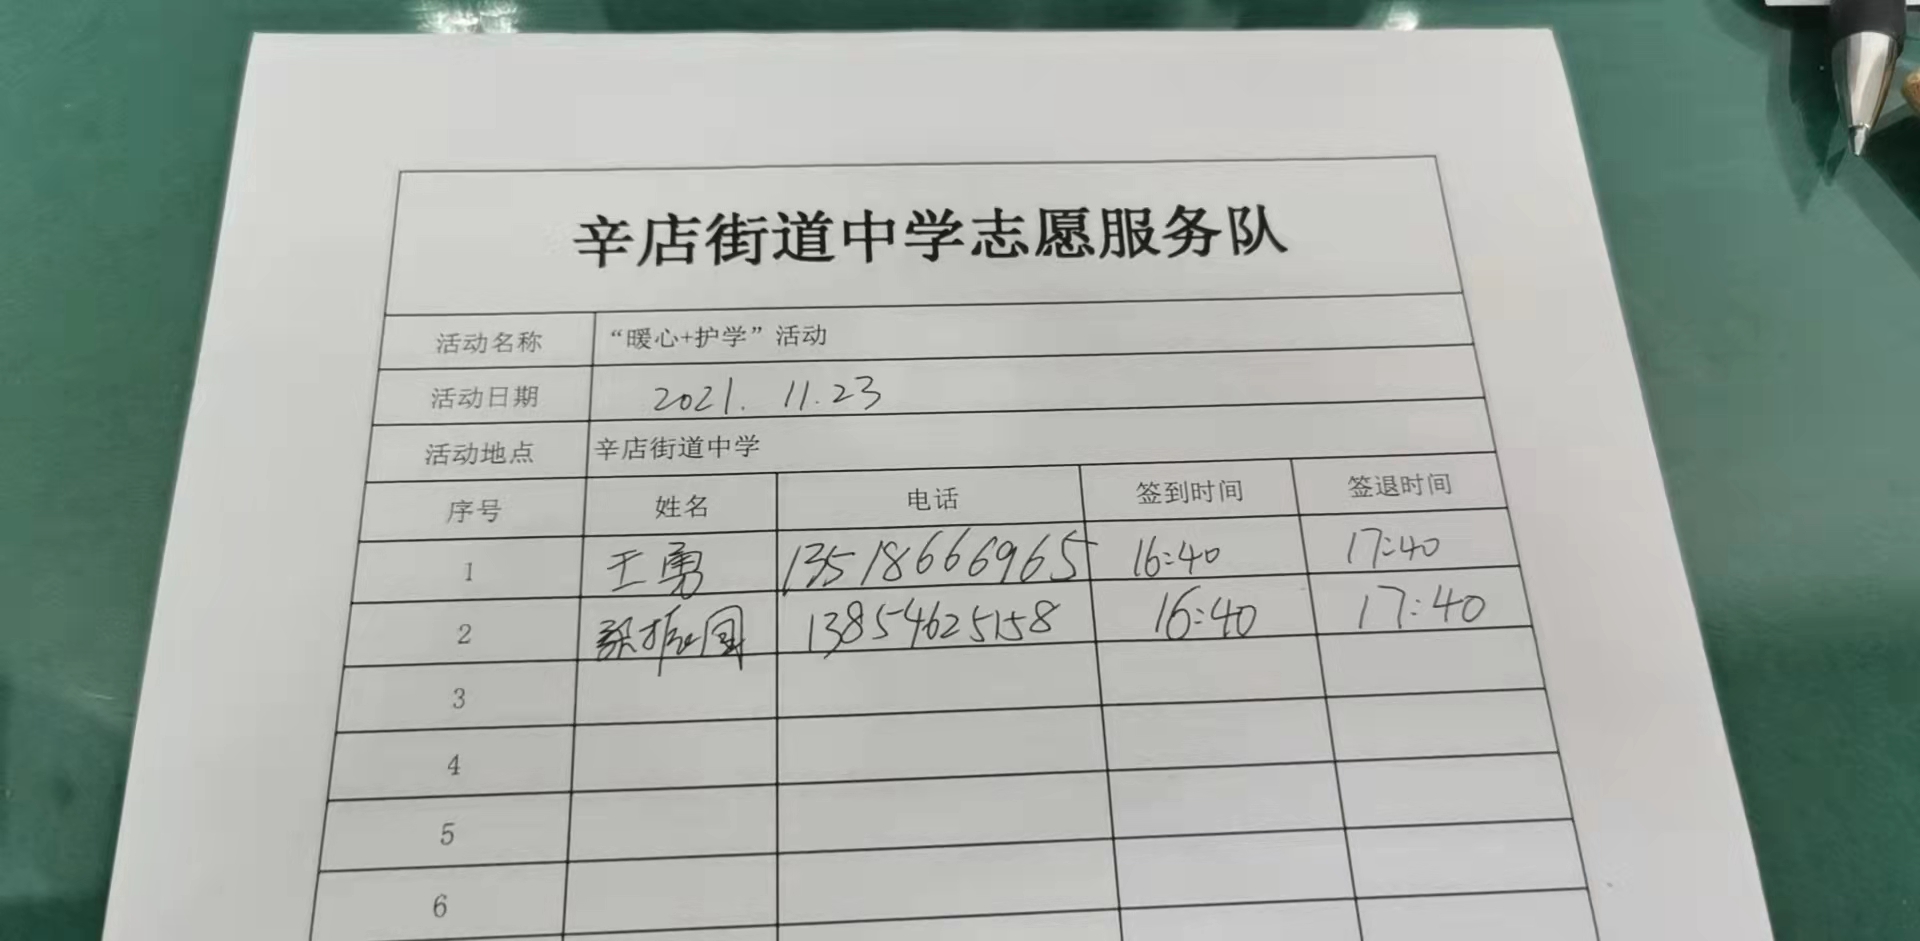 辛店街道中学志愿服务队
活动名称 “暖心+护学”活动
活动日期 2021.11.23
活动地点 辛店街道中学
序号 姓名 电话 签到时间 签退时间
1 王勇 13518666965 16:40 17:40
2 梁振国 13854625158 16:40 17:40
3
4
5
6